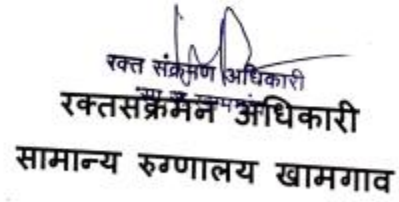 रक्त संक्रमण अधिकारी
रक्तसंक्रमन अधिकारी
सामान्य रुग्णालय खामगाव